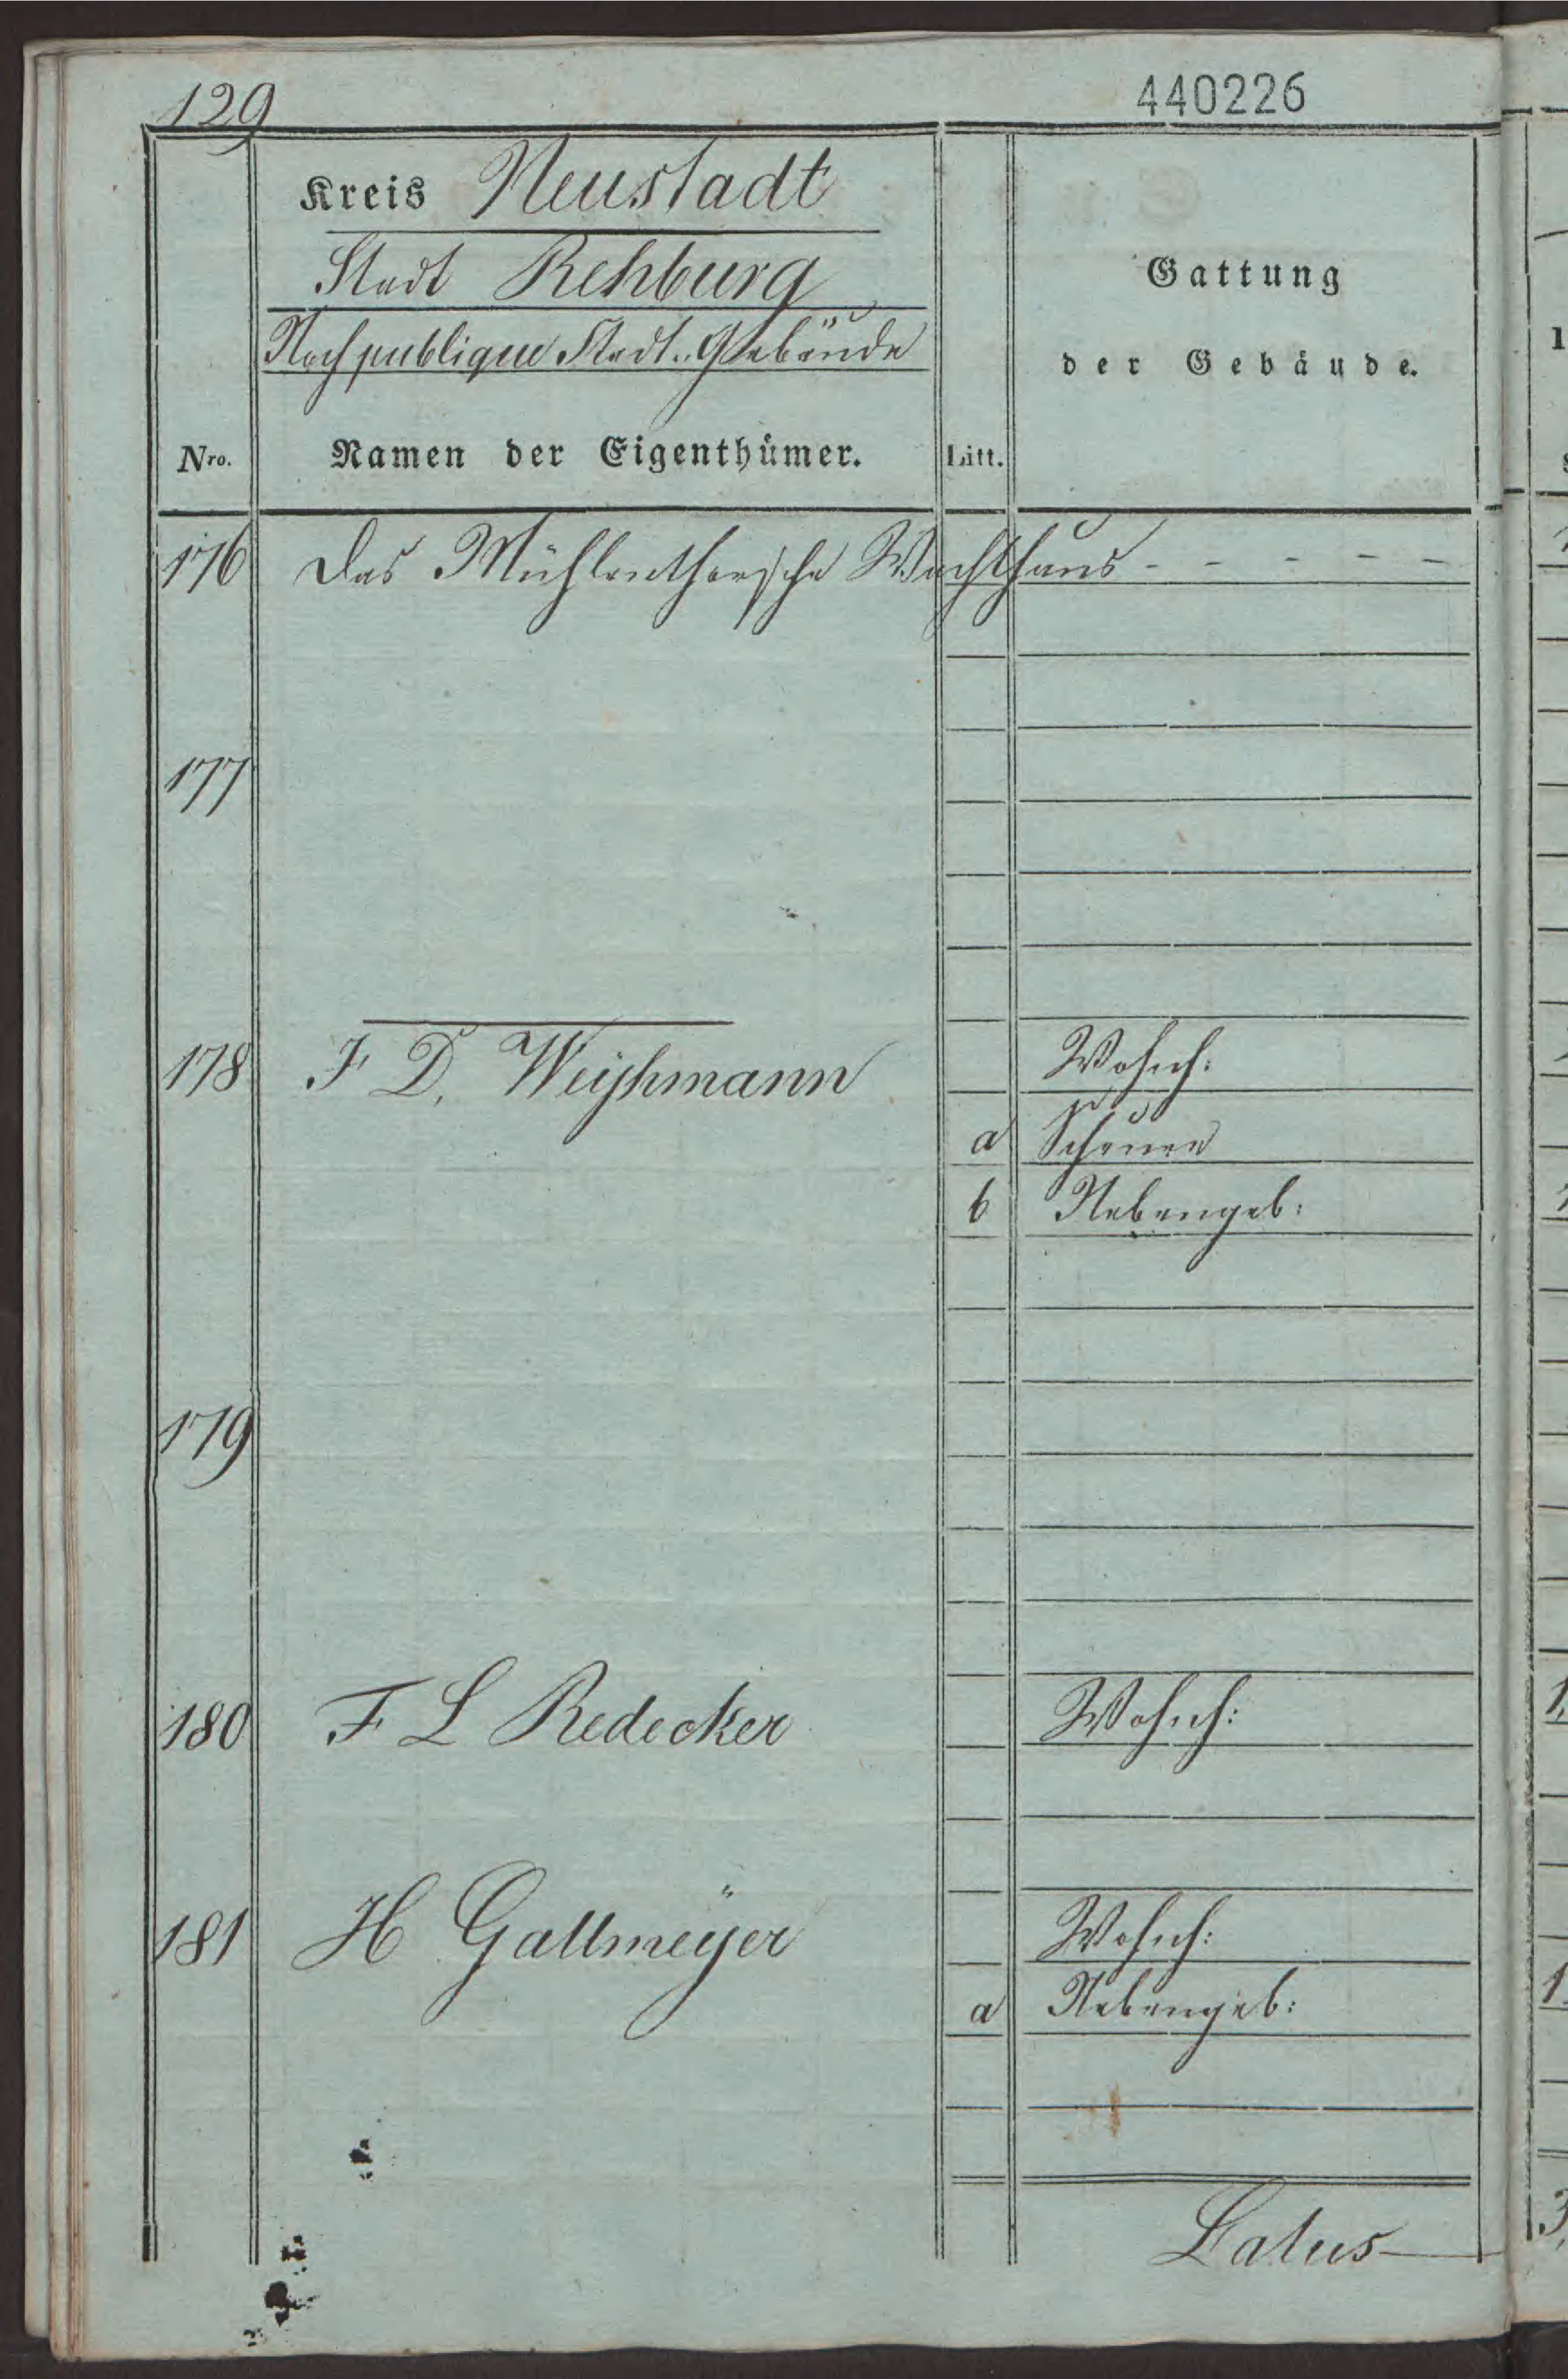 129
440226
Kreis Neustadt
Stadt Rehburg
Noch publique Stadt-Gebäude
Gattung
der Gebäude.
Nro. Namen der Eigenthümer. Litt.
176 Das Mühlenthorsche Wachthaus - - - - -
177
178 F D. Weÿhmann Wohnh:
a Scheune
b Nebengeb:
179
180 F L Redecker Wohnh:
181 H Gallmeÿer Wohnh:
a Nebengeb:
Latus